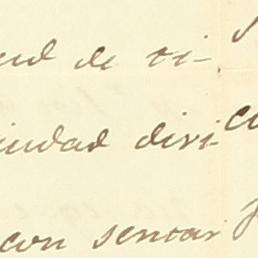 ud de ti-
iudad divi-
con sentar